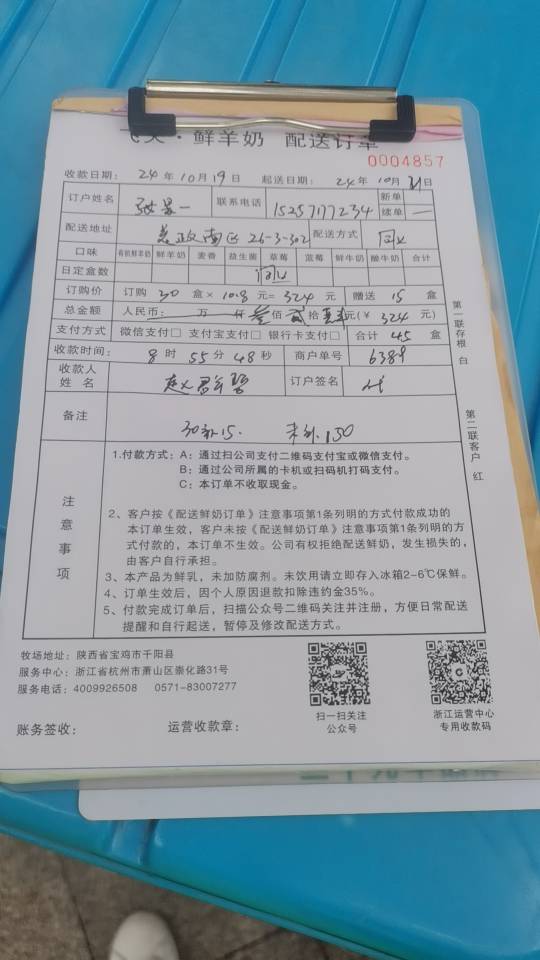 ·鲜羊奶 配送订单
0004857
收款日期: 24 年 10 月 19 日 起送日期: 24 年 10 月 21 日
订户姓名 联系电话 15257177234 新单
续单 一
配送地址 南区 26-3-302 配送方式
口味 有机鲜羊奶 鲜羊奶 麦香 益生菌 草莓 蓝莓 鲜牛奶 酸牛奶 合计
日定盒数
订购价 订购 30 盒× 10.8 元= 324 元 赠送 15 盒
总金额 人民币: 万 仟 叁 佰 贰 拾 肆 元(¥ 324 元)
支付方式 微信支付□ 支付宝支付□ 银行卡支付□ 合计 45 盒
收款时间: 8 时 55 分 48 秒 商户单号 6389
收款人
姓 名 订户签名 代
备注 30补15. 150
注意事项
1.付款方式: A: 通过扫公司支付二维码支付宝或微信支付。
B: 通过公司所属的卡机或扫码机打码支付。
C: 本订单不收取现金。
2、客户按《配送鲜奶订单》注意事项第1条列明的方式付款成功的
本订单生效，客户未按《配送鲜奶订单》注意事项第1条列明的方
式付款的，本订单不生效。公司有权拒绝配送鲜奶，发生损失的，
由客户自行承担。
3、本产品为鲜乳，未加防腐剂。未饮用请立即存入冰箱2-6℃保鲜。
4、订单生效后，因个人原因退款扣除违约金35%。
5、付款完成订单后，扫描公众号二维码关注并注册，方便日常配送
提醒和自行起送，暂停及修改配送方式。
第一联存根 白
第二联客户 红
牧场地址: 陕西省宝鸡市千阳县
服务中心: 浙江省杭州市萧山区崇化路31号
服务电话: 4009926508 0571-83007277
扫一扫关注
公众号
浙江运营中心
专用收款码
账务签收: 运营收款章: